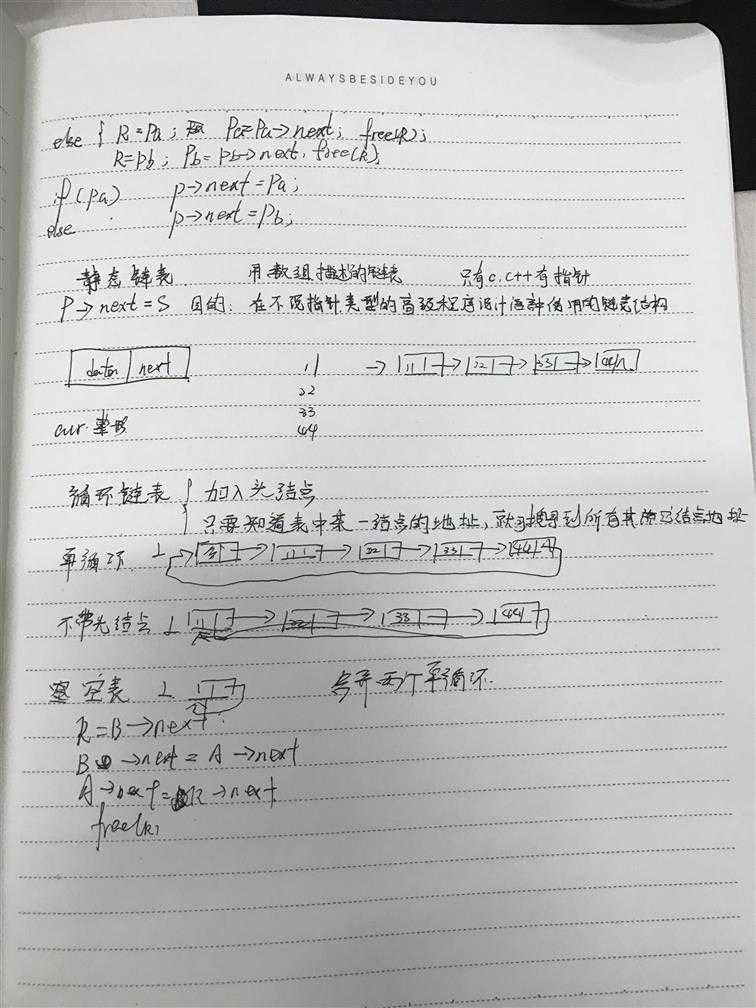 ALWAYSBESIDEYOU
else { R=Pa; Pa=Pa→next; free(R);
R=pb; Pb=pb→next, free(R),
if(pa) p→next=Pa;
else p→next=Pb;
静态链表 用数组描述的链表 只有C.C++有指针
P→next=S 目的: 在不设指针类型的高级程序设计语言中使用的链表结构
data next 11 → 11 → 22 → 33 → 44 ∧
22
33
cur.整形 44
循环链表 { 加入头结点
只要知道表中某一结点的地址,就可搜寻到所有其他的结点地址
单循环 L → 11 → 22 → 33 → 44
不带头结点 L 11 → 22 → 33 → 44
空表 L 合并两个单循环.
R=B→next.
B→next=A→next
A→next=R→next
free(R)